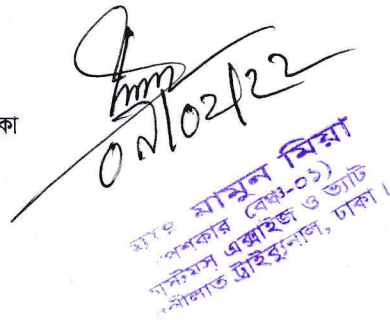 কা
০৯/০২/২২
মোঃ মামুন মিয়া
পেশকার (বেঞ্চ-০১)
কাস্টমস এক্সাইজ ও ভ্যাট
আপীলাত ট্রাইব্যুনাল, ঢাকা।